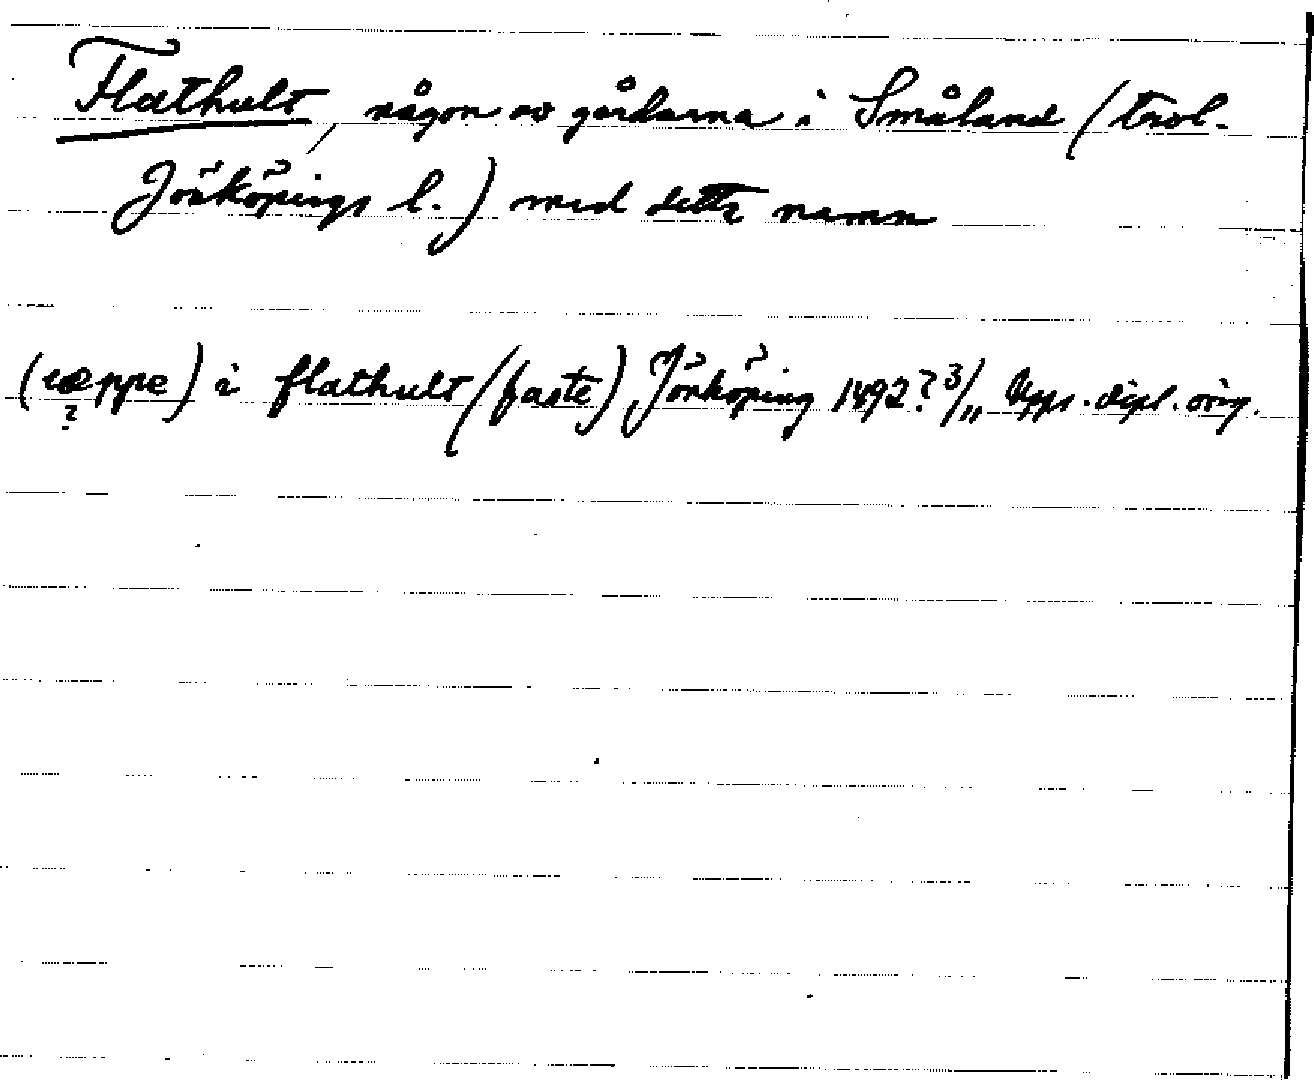 Flathult, någon av gårdarna i Småland (trol.
Jönköpings l.) med detta namn
(uæppe) i flathult (faste) Jönköping 1492? 3/11 Upps. dipl. orig.
?